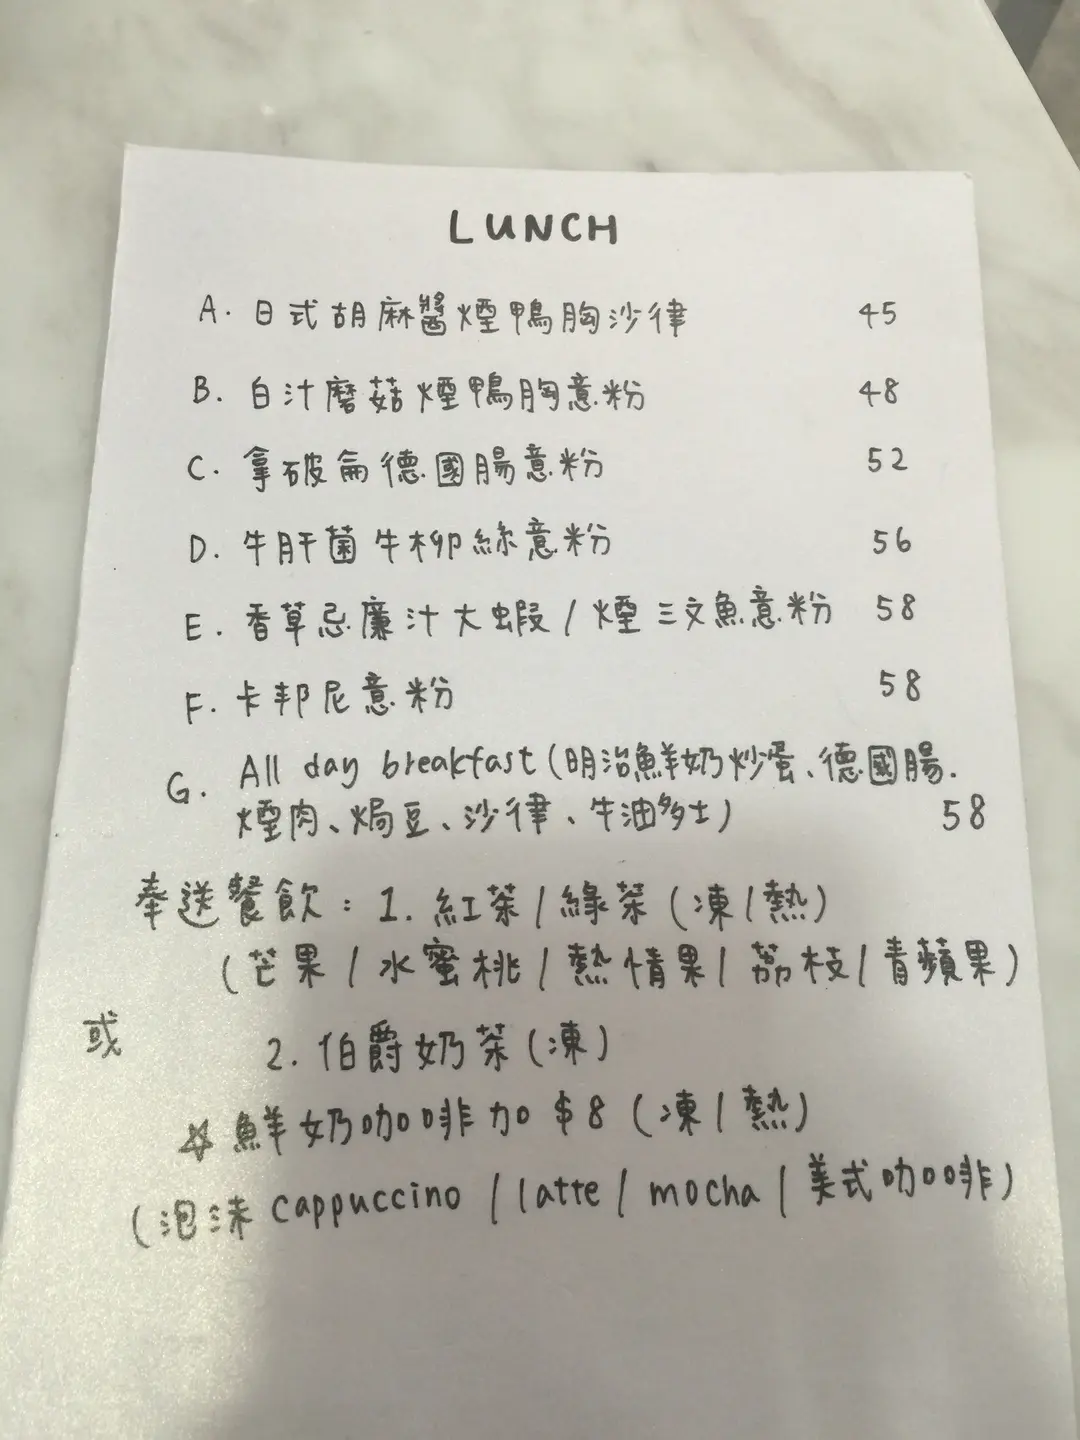 LUNCH
A. 日式胡麻醬煙鴨胸沙律 45
B. 白汁磨菇煙鴨胸意粉 48
C. 拿破侖德國腸意粉 52
D. 牛肝菌牛柳絲意粉 56
E. 香草忌廉汁大蝦/煙三文魚意粉 58
F. 卡邦尼意粉 58
G. All day breakfast(明治鮮奶炒蛋、德國腸.
煙肉、焗豆、沙律、牛油多士) 58
奉送餐飲:1. 紅茶/綠茶(凍/熱)
(芒果/水蜜桃/熱情果/荔枝/青蘋果)
或 2. 伯爵奶茶(凍)
☆鮮奶咖啡加$8(凍/熱)
(泡沫cappuccino/latte/mocha/美式咖啡)